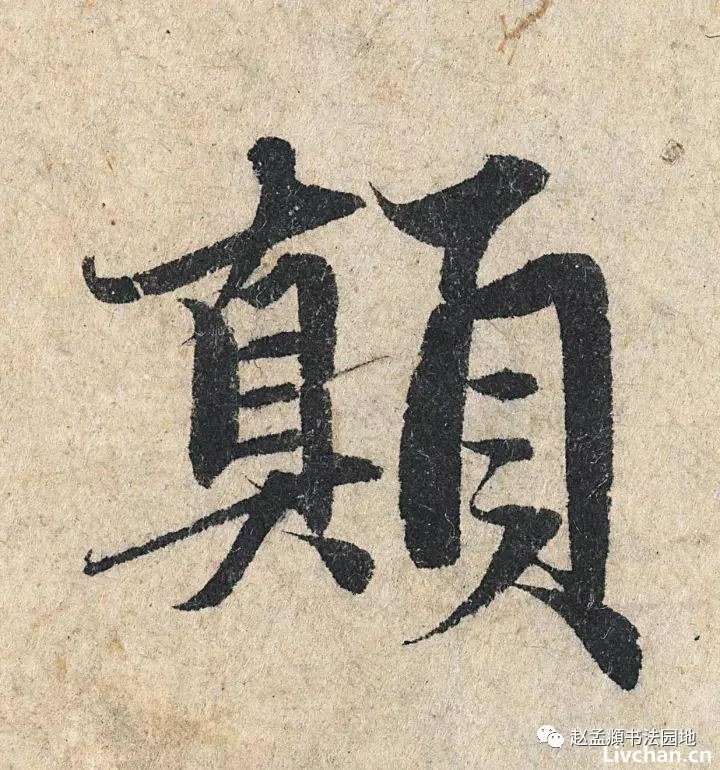 顛
赵孟頫书法园地
Livchan.cn